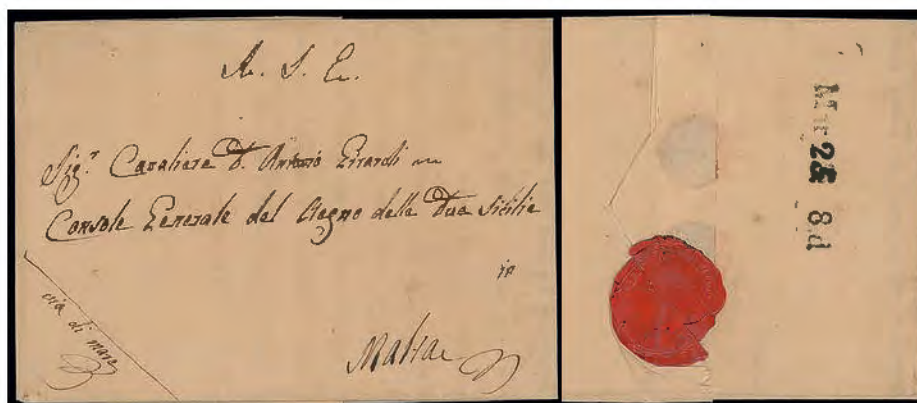 A. S. E.
Sig.r Cavaliere D. Antonio Girardi
Console Generale del Regno delle Due Sicilie
in
Malta
via di mare
Mr 25 8d